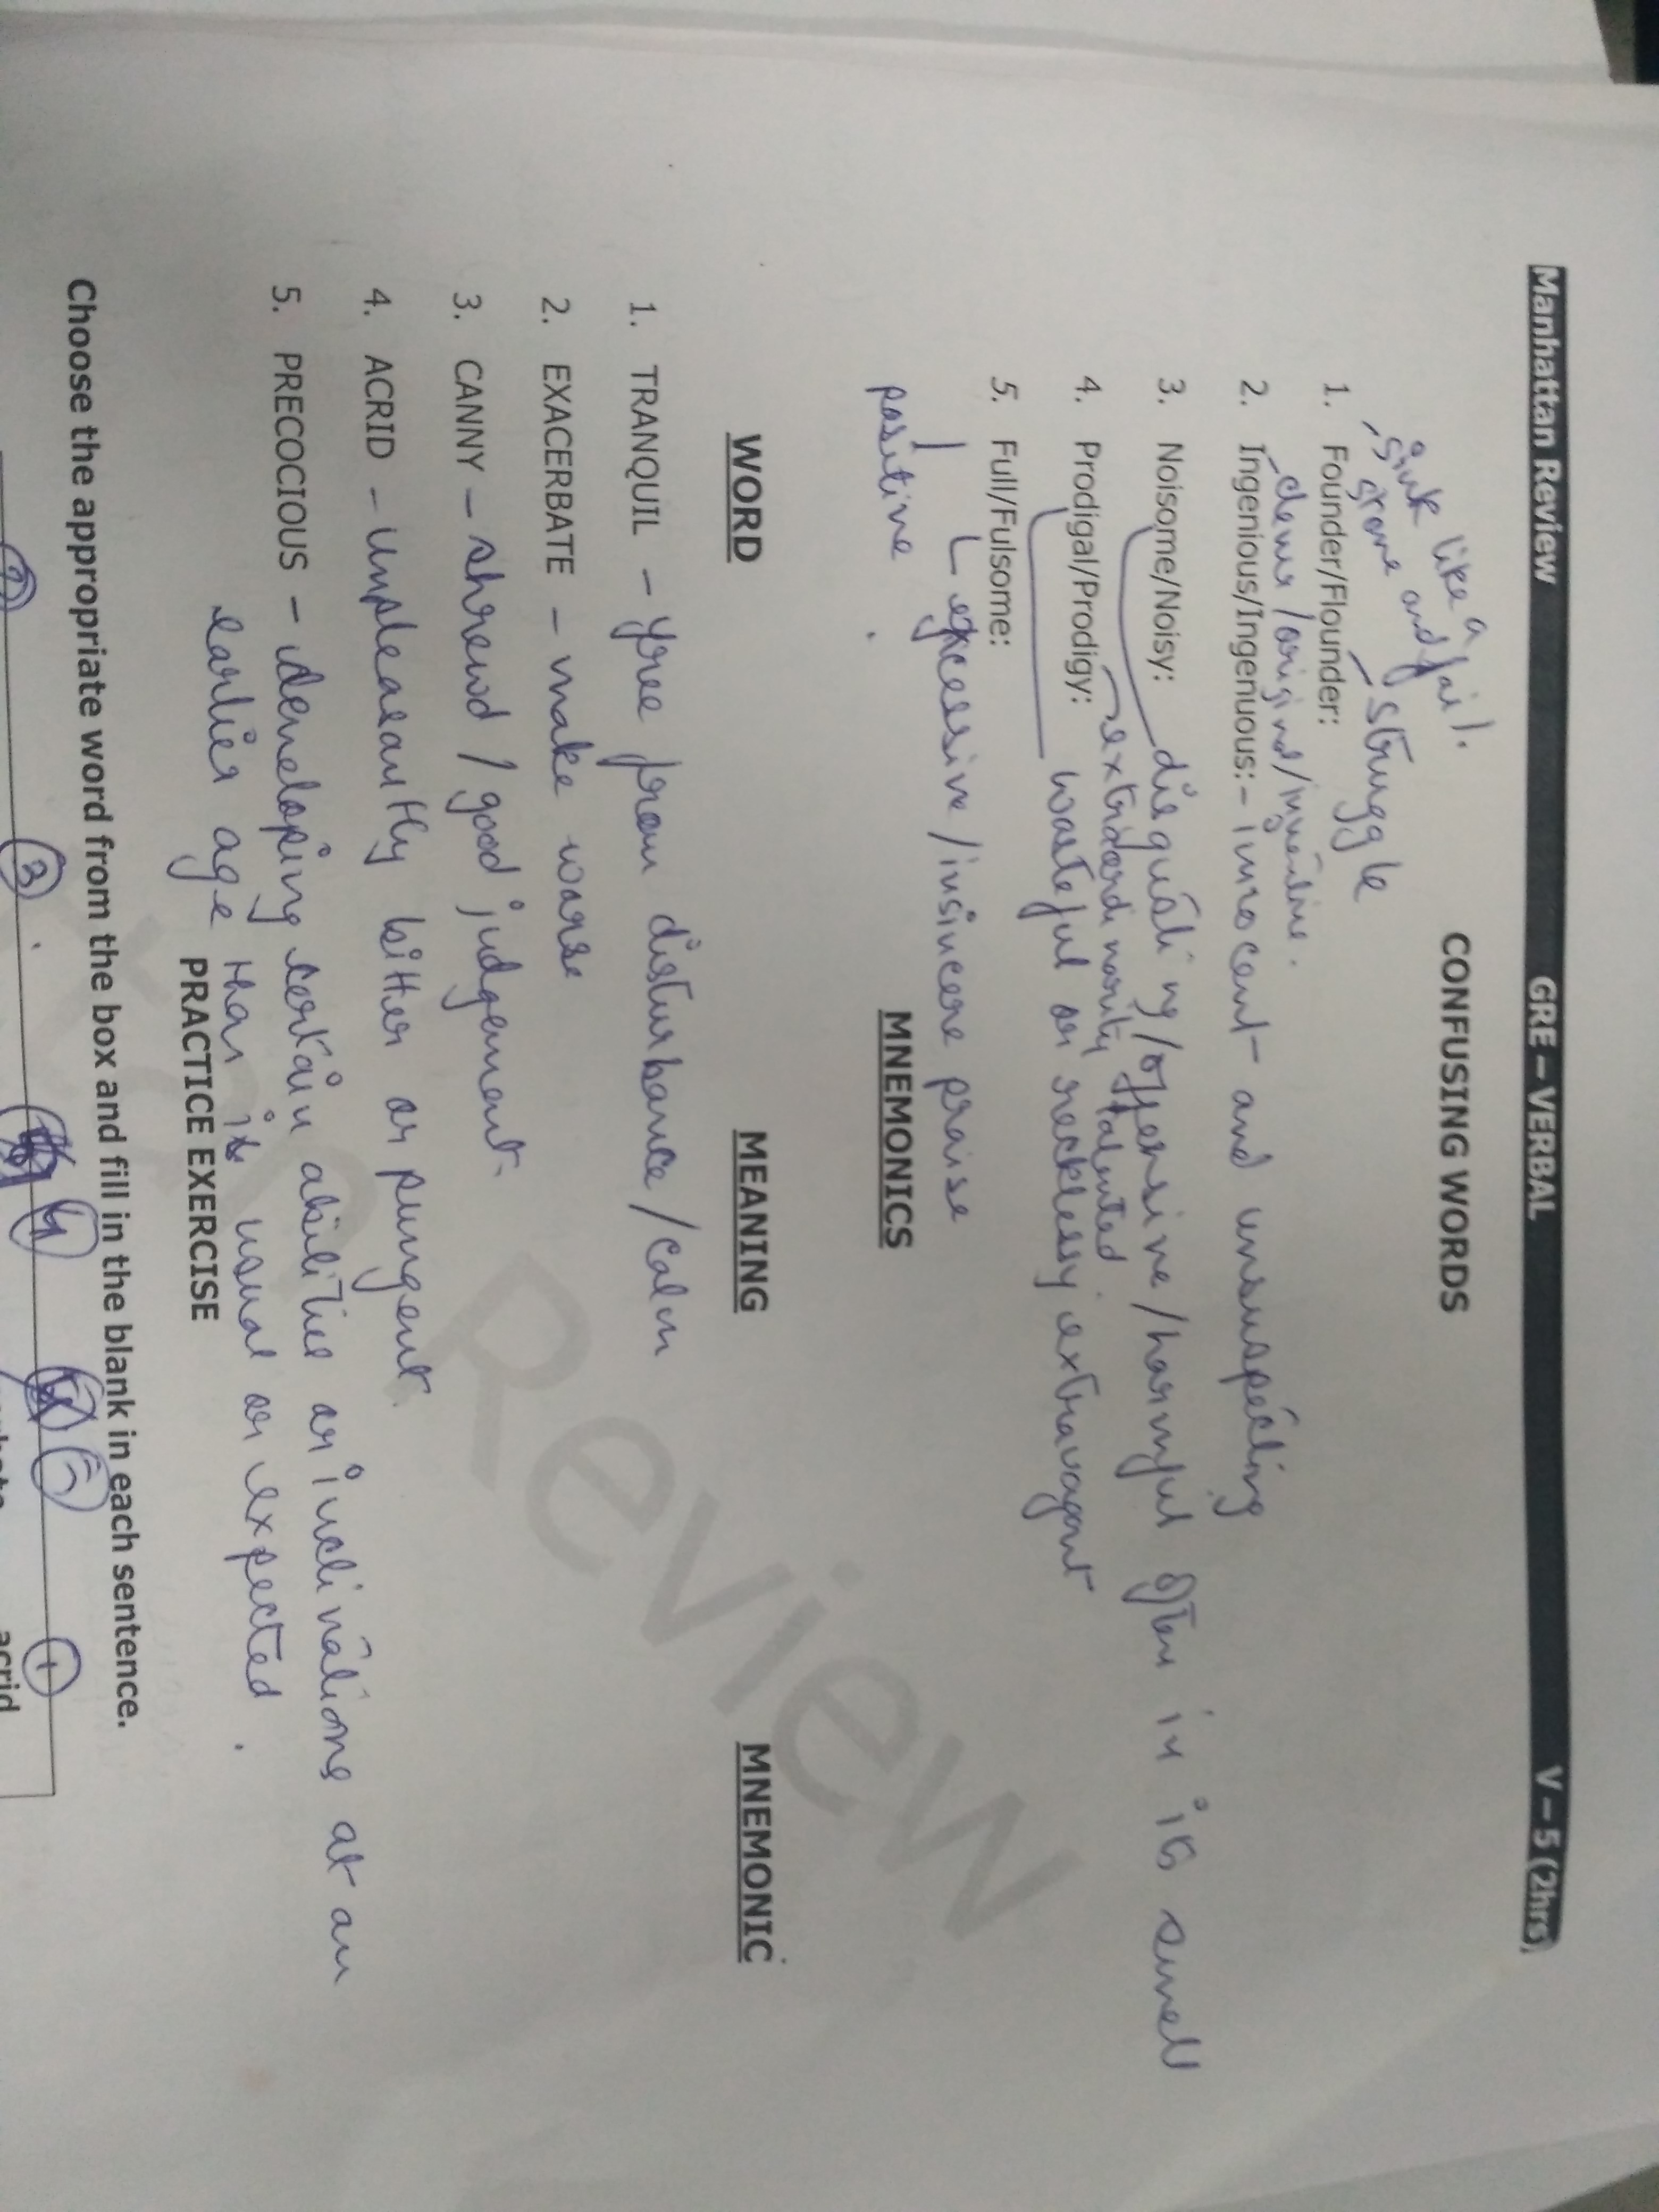 Manhattan Review GRE – VERBAL V – 5 (2hrs)
CONFUSING WORDS
sink like a
stone and fail.
struggle
1. Founder/Flounder:
clever/original/inventive.
2. Ingenious/Ingenuous:- innocent and unsuspecting
3. Noisome/Noisy: disgusting/offensive/harmful often in its smell
extraordinarily talented
4. Prodigal/Prodigy: wasteful or recklessly extravagant
5. Full/Fulsome:
excessive/insincere praise
positive
MNEMONICS
WORD MEANING MNEMONIC
1. TRANQUIL – free from disturbance/calm
2. EXACERBATE – make worse
3. CANNY – shrewd / good judgement.
4. ACRID – unpleasantly bitter or pungent.
5. PRECOCIOUS – developing certain abilities or inclinations at an
earlier age than is usual or expected.
PRACTICE EXERCISE
Choose the appropriate word from the box and fill in the blank in each sentence.
2 3 4 5 1
acrid
Review